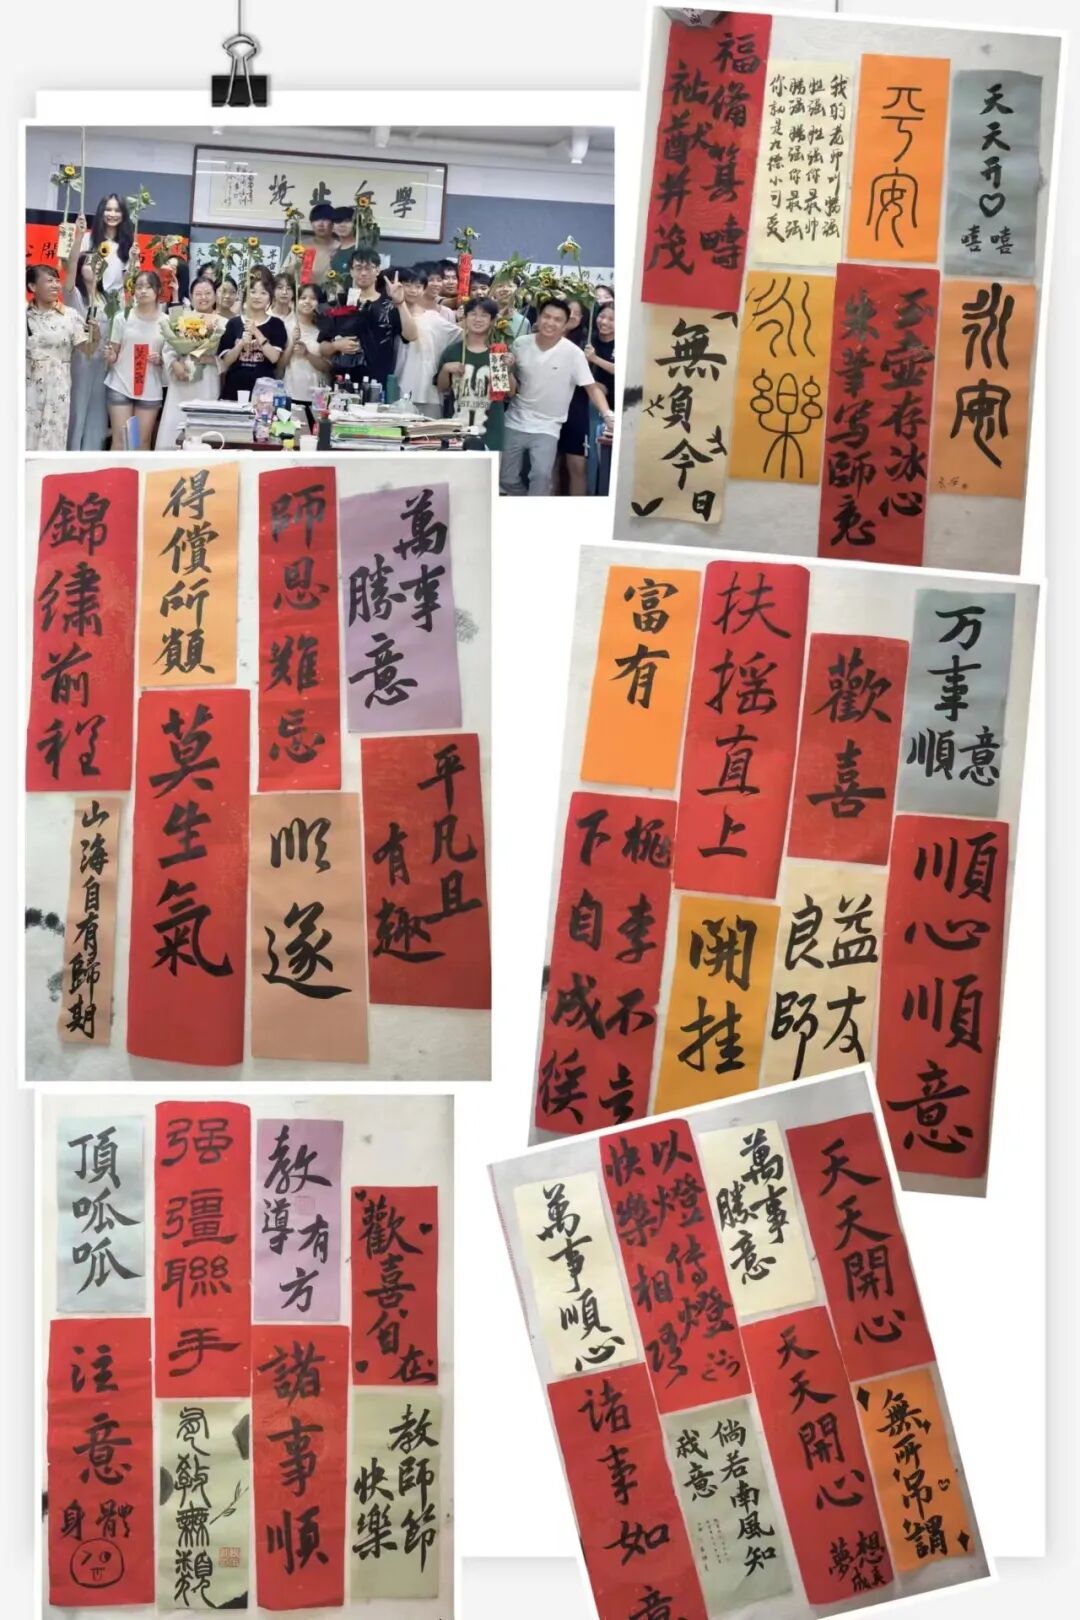 學無止境
福備箕疇
祉猷并茂
我的老师叫
你最帅
你最强
你就是九
小可爱
平安
天天开♡
嘻嘻
無負今日
永樂
玉壶存冰心
朱筆写師恩
永安
錦繡前程
得償所願
師恩難忘
萬事
勝意
山海自有歸期
莫生氣
順遂
平凡且
有趣
富有
扶摇直上
歡喜
万事
順意
桃李不言
下自成蹊
開挂
益友
良師
順心順意
頂呱呱
强彊聯手
教導
有方
歡喜自在
注意
身體
有教無類
諸事順
教師節
快樂
萬事順心
以燈传燈
快樂相
萬事
勝意
天天開心
諸事如意
倘若南風知
我意
天天開心
夢想
成真
無所吊謂